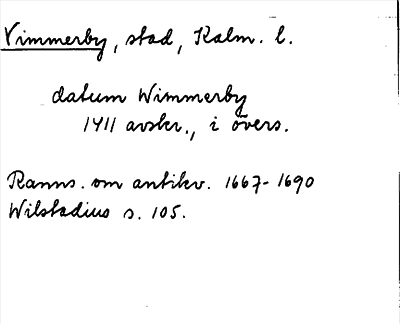 Vimmerby, stad, Kalm. l.
datum Wimmerby
1411 avskr., i övers.
Ranns. om antikv. 1667-1690
Wilstadius s. 105.